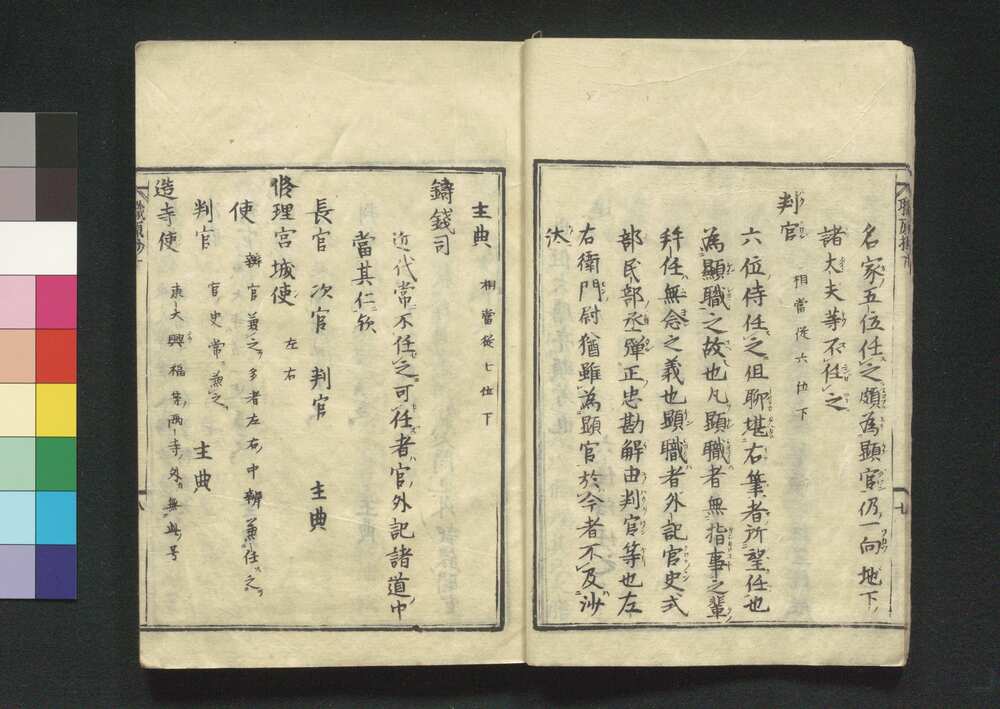 名家五位任之頗為顕官仍一向地下
諸大夫等不任之
判官 相當從六位下
六位侍任之但聊堪右筆者所望任也
為顯職之故也凡顯職者無指事之輩
拜任無念之義也顕職者外記官史式
部民部丞弾正忠勘解由判官等也左
右衛門尉猶雖為顕官於今者不及沙
汰
主典 相當從七位下
鋳錢司
近代常不任之可任者官外記諸道中
當其仁欤
長官 次官 判官 主典
修理宮城使 左右
使 辨官兼之多者左右中辨兼任之
判官 官史常兼之 主典
造寺使 東大興福等両寺外無此号